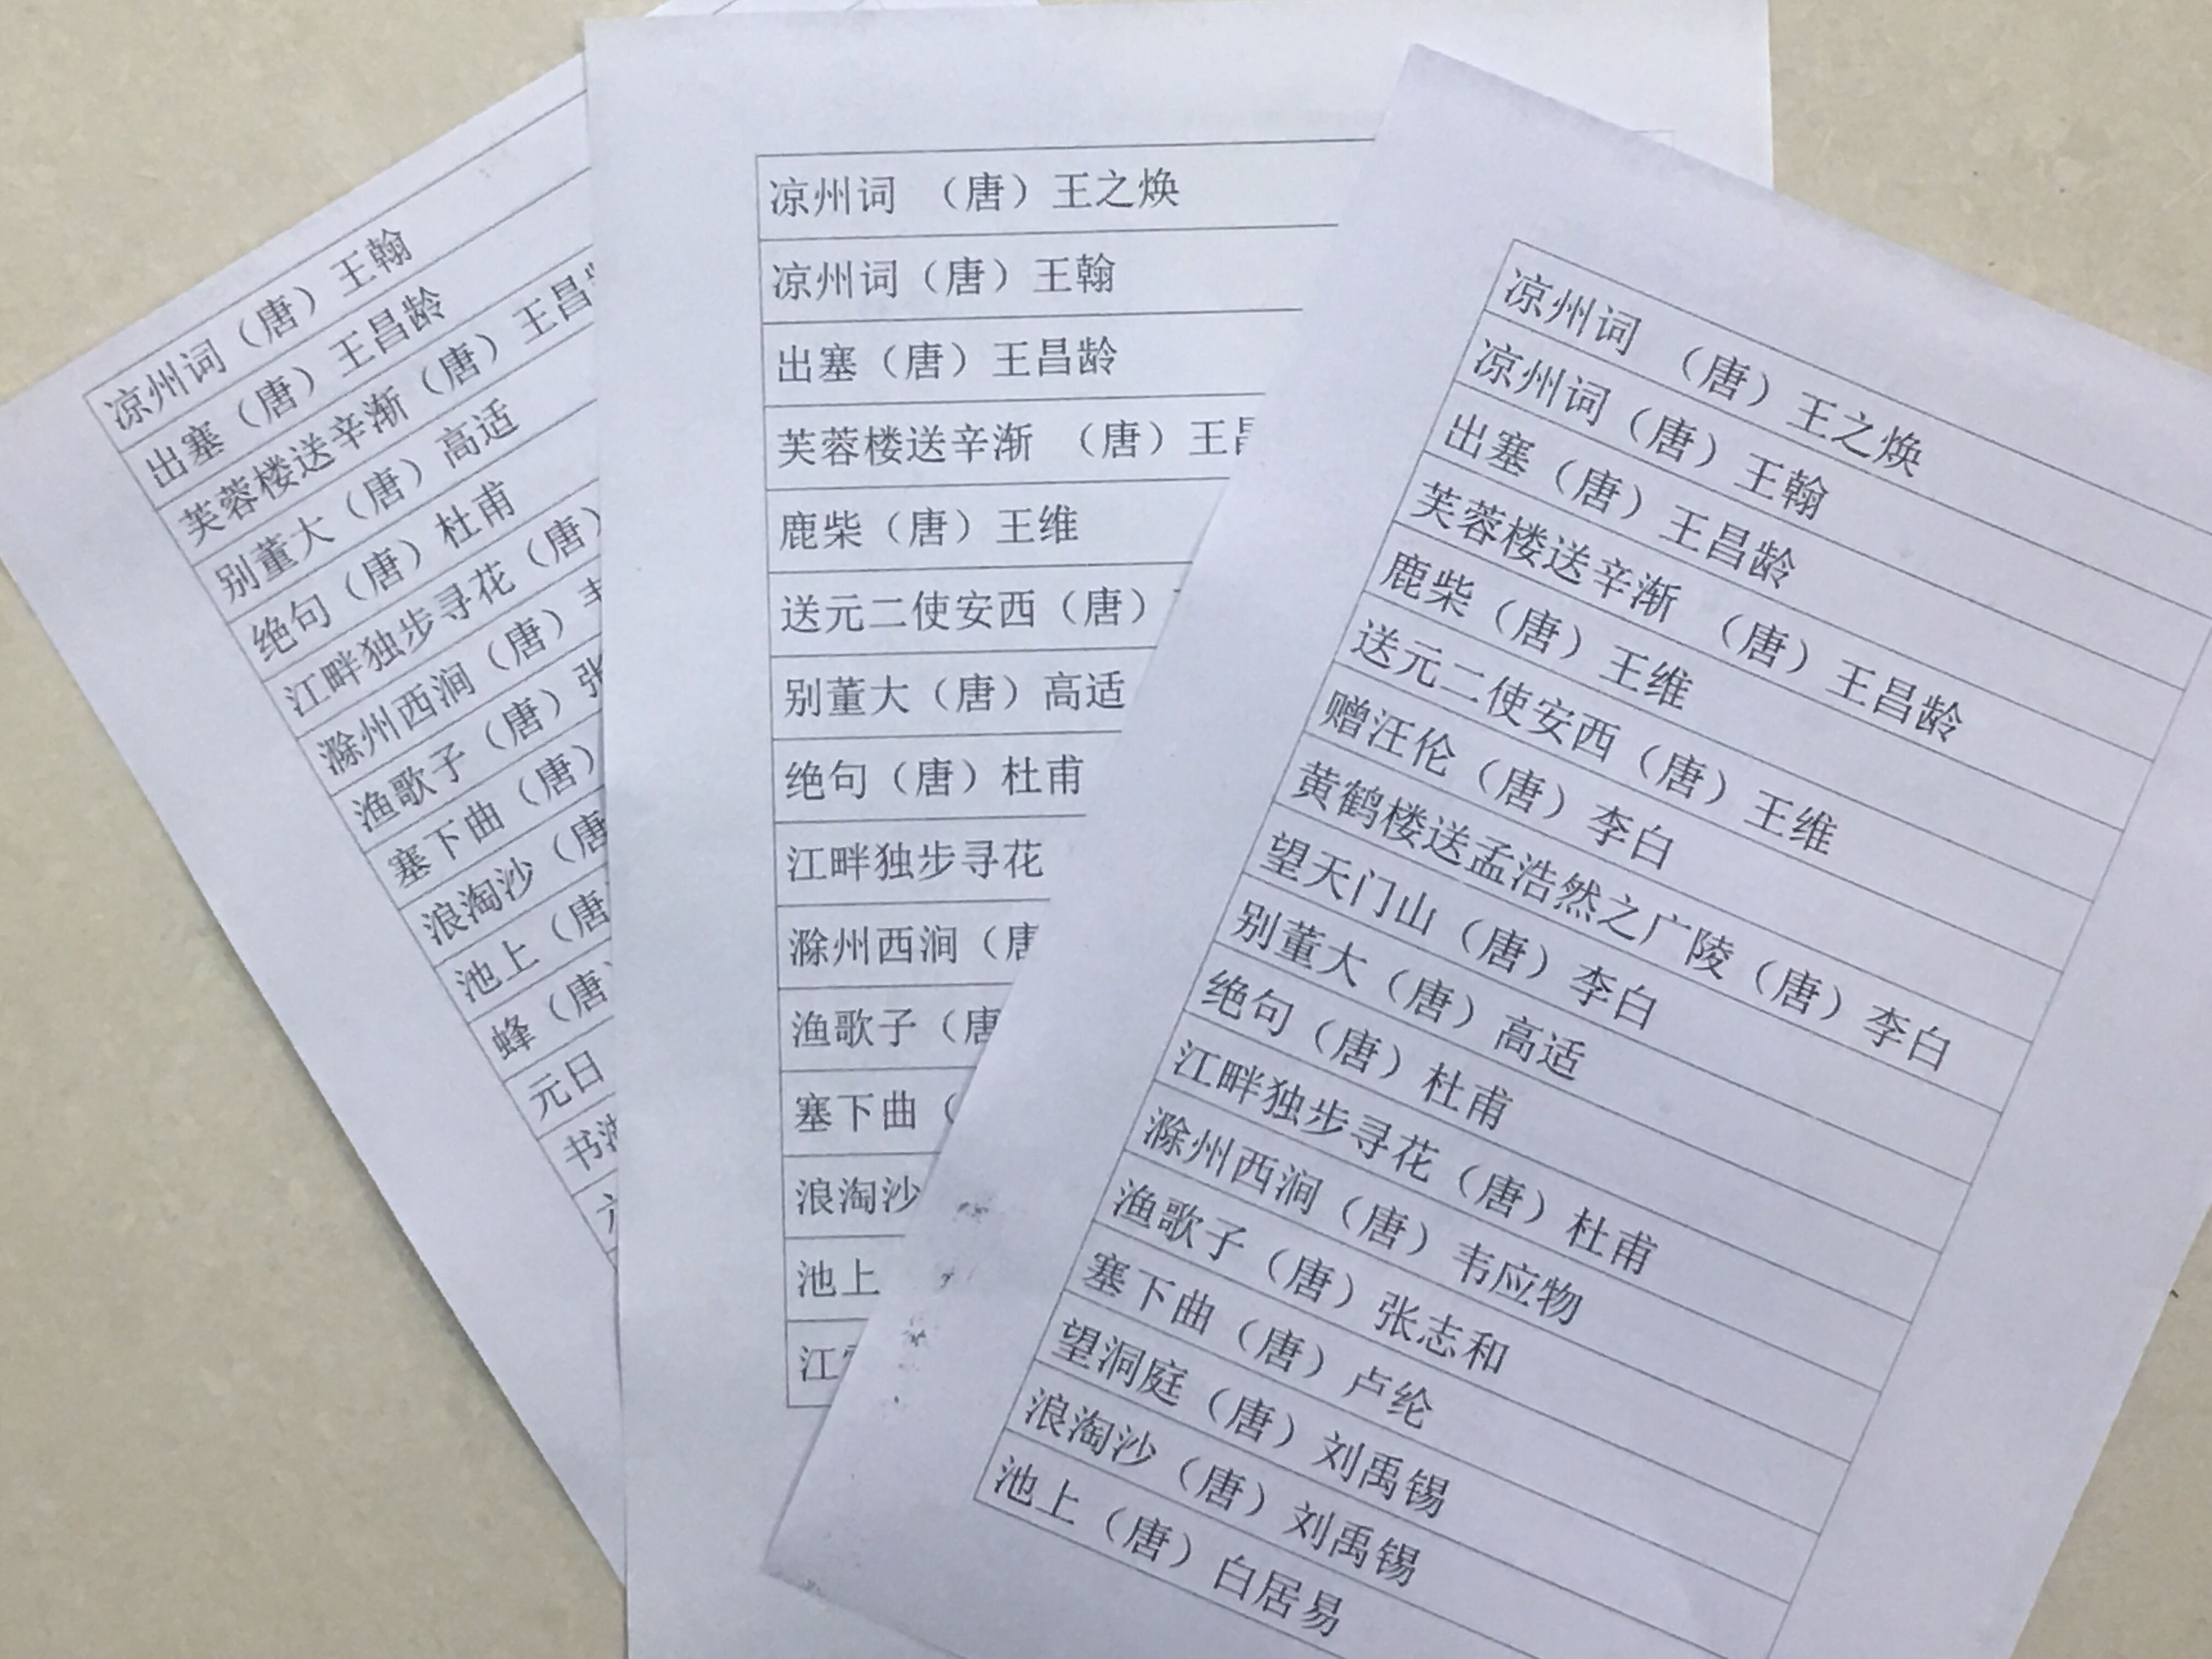 凉州词（唐）王翰
出塞（唐）王昌龄
芙蓉楼送辛渐（唐）王昌
别董大（唐）高适
绝句（唐）杜甫
江畔独步寻花（唐）
滁州西涧（唐）
渔歌子（唐）张
塞下曲（唐）
浪淘沙（唐
池上（唐
蜂（唐
元日
书
凉州词 （唐）王之焕
凉州词（唐）王翰
出塞（唐）王昌龄
芙蓉楼送辛渐 （唐）王
鹿柴（唐）王维
送元二使安西（唐）
别董大（唐）高适
绝句（唐）杜甫
江畔独步寻花
滁州西涧（唐
渔歌子（唐
塞下曲（
浪淘沙
池上
江
凉州词 （唐）王之焕
凉州词（唐）王翰
出塞（唐）王昌龄
芙蓉楼送辛渐 （唐）王昌龄
鹿柴（唐）王维
送元二使安西（唐）王维
赠汪伦（唐）李白
黄鹤楼送孟浩然之广陵（唐）李白
望天门山（唐）李白
别董大（唐）高适
绝句（唐）杜甫
江畔独步寻花（唐）杜甫
滁州西涧（唐）韦应物
渔歌子（唐）张志和
塞下曲（唐）卢纶
望洞庭（唐）刘禹锡
浪淘沙（唐）刘禹锡
池上（唐）白居易